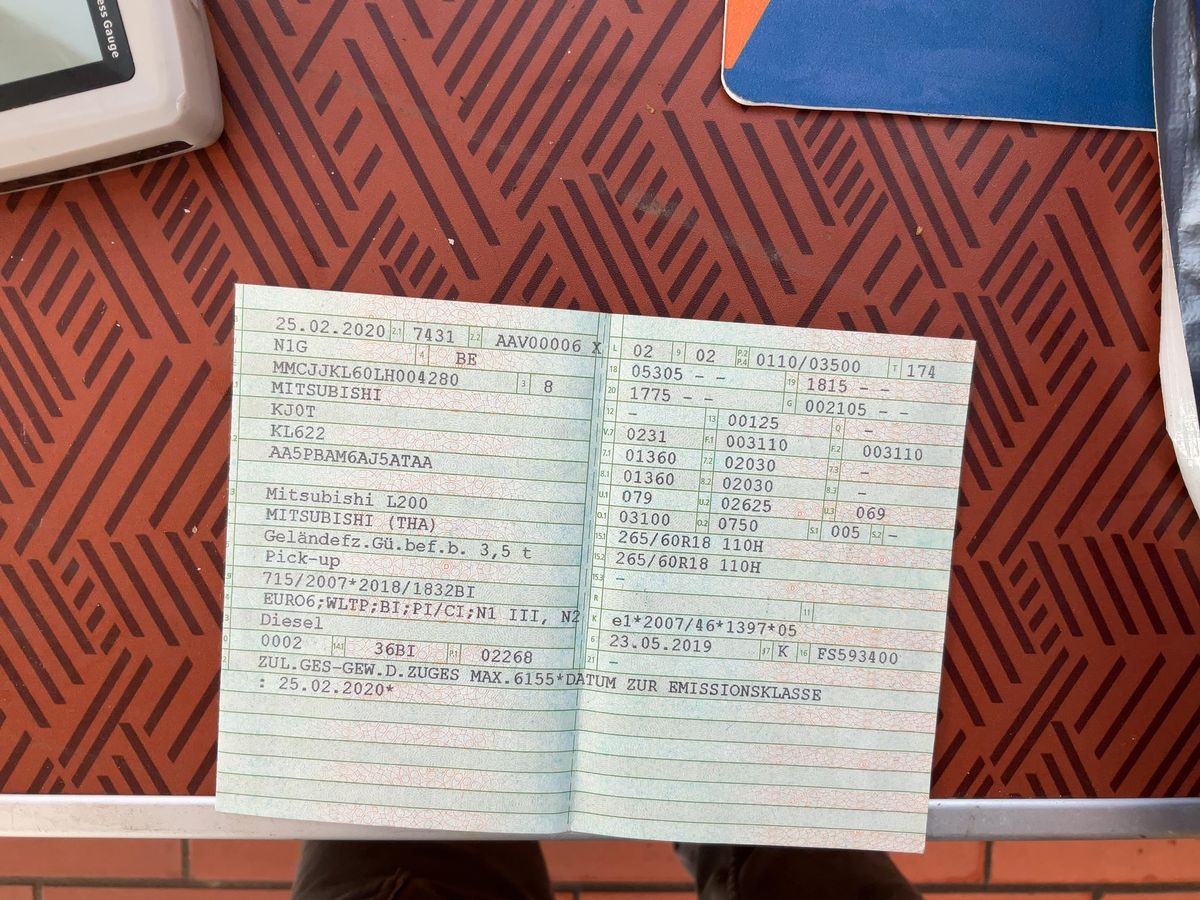 ess Gauge
25.02.2020 2.1 7431 2.2 AAV00006 X
N1G 4 BE
MMCJJKL60LH004280 3 8
MITSUBISHI
KJ0T
KL622
AA5PBAM6AJ5ATAA
Mitsubishi L200
MITSUBISHI (THA)
Geländefz.Gü.bef.b. 3,5 t
Pick-up
715/2007*2018/1832BI
EURO6;WLTP;BI;PI/CI;N1 III, N2
Diesel
0002 14.1 36BI P.1 02268
ZUL.GES-GEW.D.ZUGES MAX.6155*DATUM ZUR EMISSIONSKLASSE
: 25.02.2020*
L 02 9 02 P.2 P.4 0110/03500 T 174
18 05305 – – 19 1815 – –
20 1775 – – G 002105 – –
12 – 13 00125 Q –
V.7 0231 F.1 003110 F.2 003110
7.1 01360 7.2 02030 7.3 –
8.1 01360 8.2 02030 8.3 –
U.1 079 U.2 02625 U.3 069
O.1 03100 O.2 0750 S.1 005 S.2 –
15.1 265/60R18 110H
15.2 265/60R18 110H
15.3 –
R 11
K e1*2007/46*1397*05
6 23.05.2019 17 K 16 FS593400
21 –